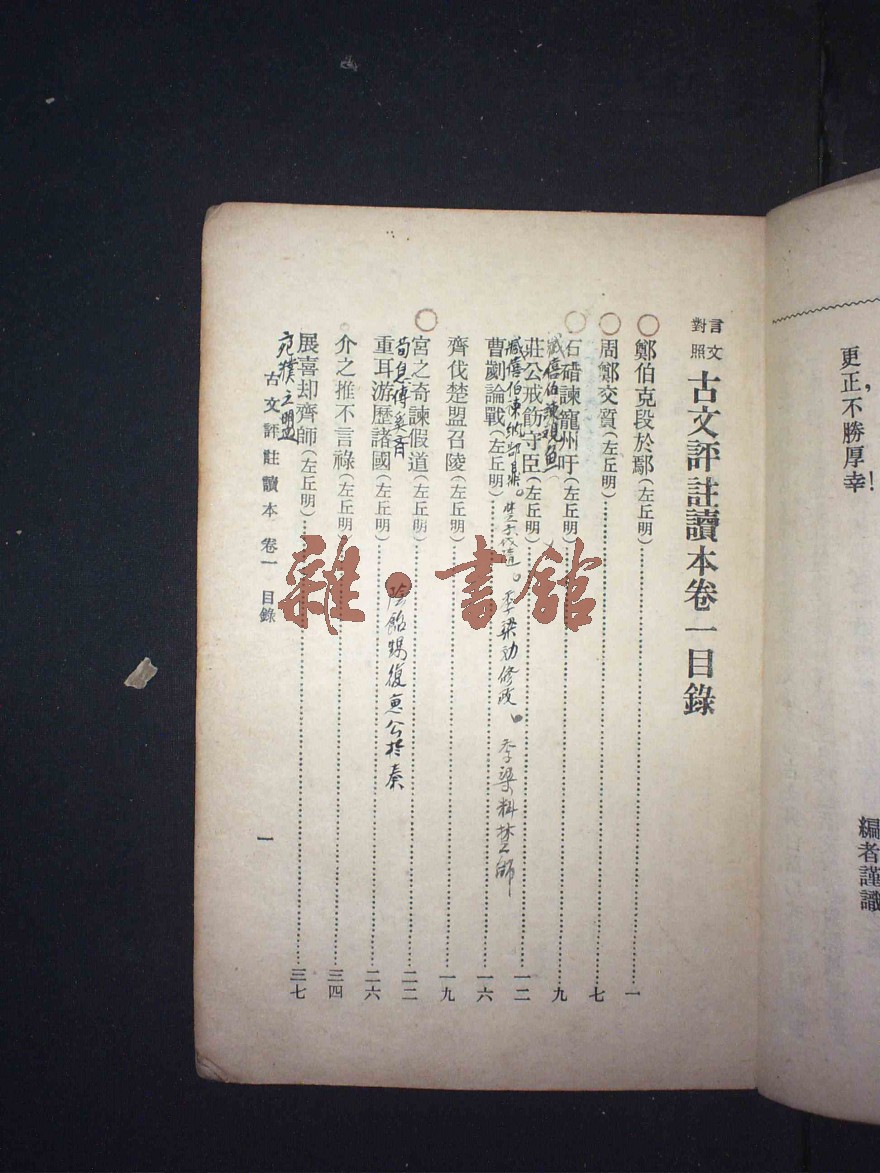 更正，不勝厚幸！
編者謹識
言文對照 古文評註讀本卷一目錄
鄭伯克段於鄢(左丘明)…一
周鄭交質(左丘明)…七
石碏諫寵州吁(左丘明)…九
臧僖伯諫觀魚
莊公戒飭守臣(左丘明)…一二
臧僖伯諫納郜鼎。楚子伐隨。季梁勸修政。季梁料楚師
曹劌論戰(左丘明)…一六
齊伐楚盟召陵(左丘明)…一九
宮之奇諫假道(左丘明)…二二
荀息傅奚齊 陰飴甥復惠公於秦
重耳游歷諸國(左丘明)…二六
介之推不言祿(左丘明)…三四
展喜却齊師(左丘明)…三七
宛濮之盟
古文評註讀本 卷一 目錄
一
雜·書館